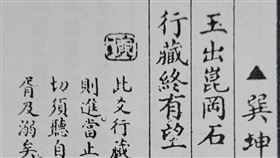 ▲巽坤
玉出崑岡石
行藏終有望
此爻行藏
則進當止
切須聽自
胥及溺矣